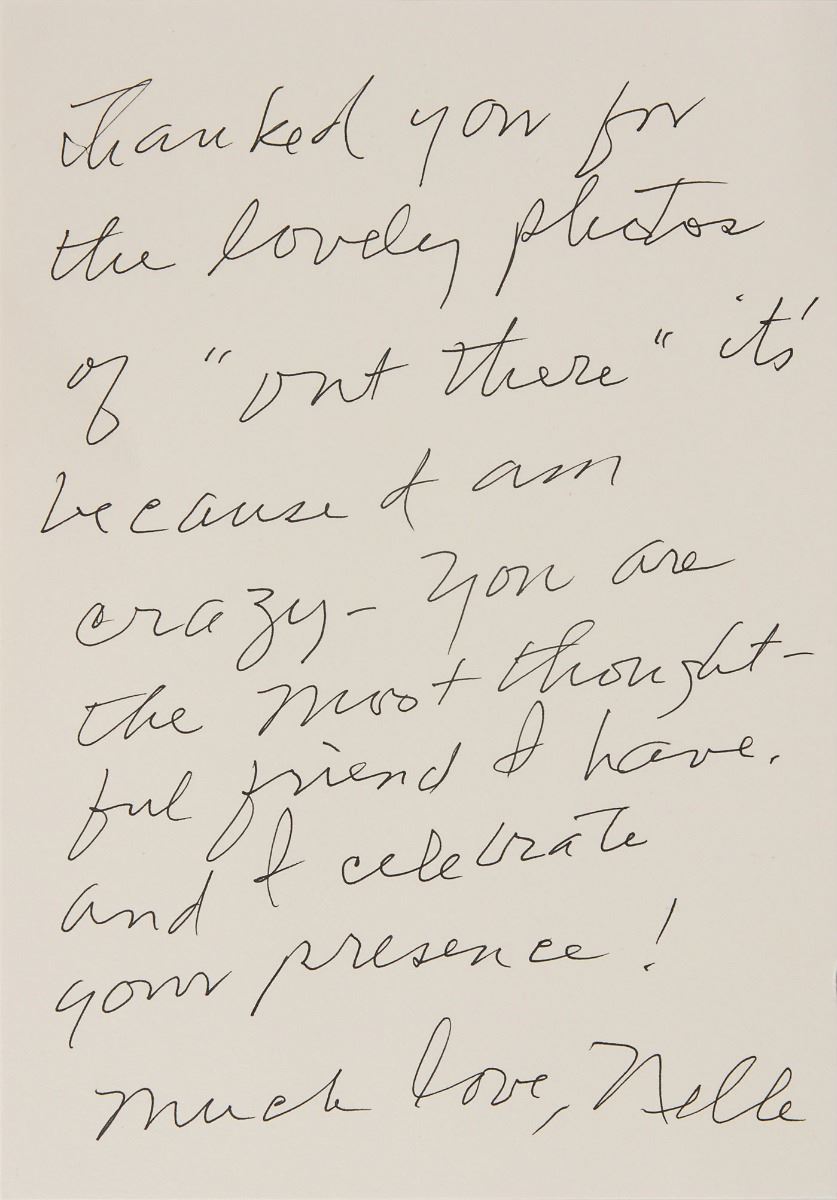 thanked you for
the lovely photos
of "out there" it's
because I am
crazy - You are
the most thought-
ful friend I have.
and I celebrate
your presence!
Much love, Nelle